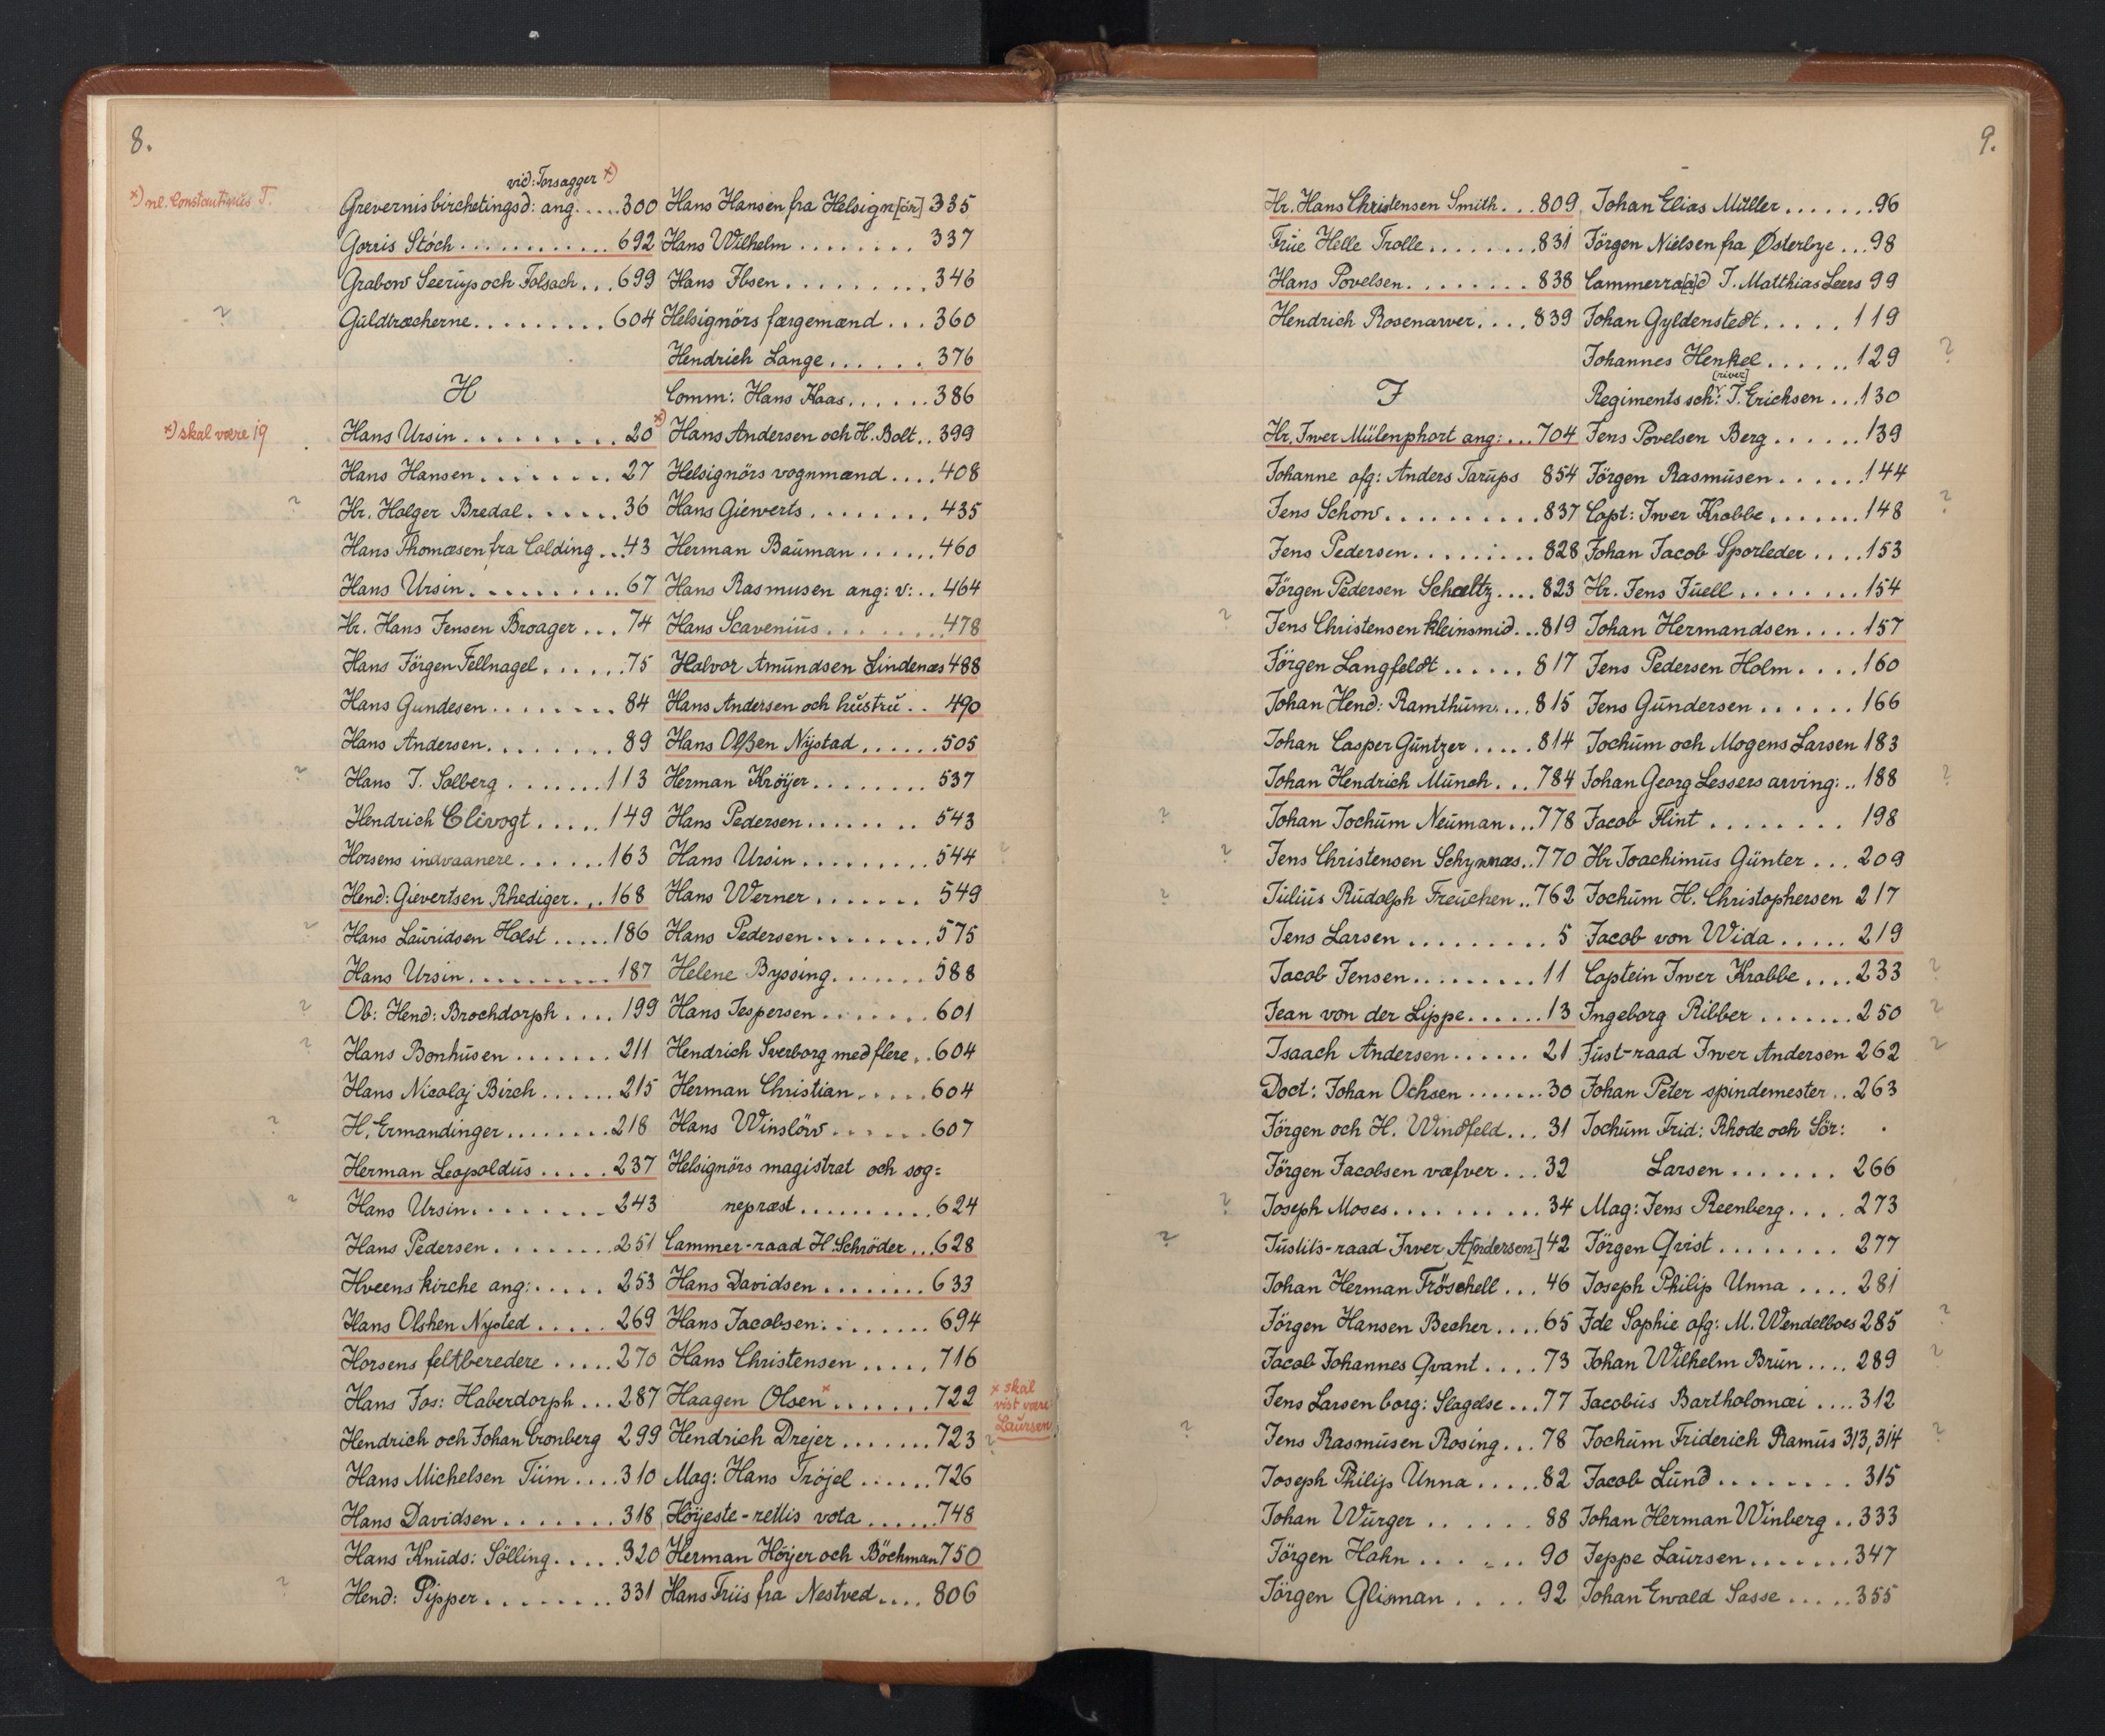 8.
vid: Torsagger x)
x) nl. Constantinus T.
Grevernis birchetingsd: ang. .... 300
Gorris Stöch ............ 692
Grabow Seerup och Folsach ... 699
? Guldtræcherne ......... 604
H
x) skal være 19
Hans Ursin ......... 20 x)
Hans Hansen ........ 27
? Hr. Holger Bredal ...... 36
Hans Thomæsen fra Colding .. 43
Hans Ursin ......... 67
Hr. Hans Jensen Broager ... 74
Hans Jörgen Fellnagel ...... 75
Hans Gundesen ........ 84
Hans Andersen ........ 89
? Hans J. Solberg ....... 113
Hendrich Clivogt ..... 149
Horsens indvaanere ...... 163
Hend: Gievertsen Rhediger ... 168
? Hans Lauridsen Holst ..... 186
Hans Ursin ......... 187
? Ob: Hend: Brochdorph .... 199
? Hans Bonhusen ....... 211
Hans Nicolaj Birch ...... 215
? H. Ermandinger ........ 218
Herman Leopoldus ..... 237
? Hans Ursin ........ 243
Hans Pedersen ........ 251
Hveens kirche ang: ..... 253
Hans Olshen Nysted ..... 269
Horsens feltberedere ..... 270
Hans Jos: Haberdorph ... 287
Hendrich och Johan Cronberg 299
Hans Michelsen Tüm .... 310
Hans Davidsen ....... 318
Hans Knuds: Sölling ..... 320
? Hend: Pipper ........ 331
Hans Hansen fra Helsign[ör] 335
Hans Wilhelm ........ 337
Hans Ibsen ......... 346
Helsignörs færgemænd ... 360
Hendrich Lange ...... 376
Comm: Hans Kaas ...... 386
Hans Andersen och H. Bolt .. 399
Helsignörs vognmænd .... 408
Hans Giewerts ........ 435
Herman Bauman ...... 460
Hans Rasmusen ang: v: .. 464
Hans Scavenius ........ 478
Halvor Amundsen Lindenæs 488
Hans Andersen och hustru .. 490
Hans Olßen Nystad ...... 505
Herman Kröyer ........ 537
Hans Pedersen ....... 543
Hans Ursin ......... 544 ?
Hans Werner ....... 549
Hans Pedersen ........ 575
Helene Byssing ....... 588
Hans Jespersen ....... 601
Hendrich Sverborg med flere .. 604
Herman Christian ..... 604
Hans Winslöw ...... 607
Helsignörs magistrat och sog=
nepræst .......... 624
Cammer-raad H. Schröder ... 628
Hans Davidsen ........ 633
Hans Jacobsen ........ 694
Hans Christensen ..... 716
Haagen Olsen x ....... 722
x skal
vist være
Laursen
Hendrich Drejer ....... 723 ?
Mag: Hans Tröjel ...... 726
Höyeste-rettis vota ...... 748
Herman Höyer och Böchman 750
Hans Friis fra Nestved .... 806
9.
Hr. Hans Christensen Smith ... 809
Frue Helle Trolle ........ 831
Hans Povelsen ........ 838
Hendrich Rosenarver .... 839
J
Hr. Iwer Mülenphort ang: ... 704
Johanne afg: Anders Tarups 854
Jens Schow .......... 837
Jens Pedersen ........ 828
Jörgen Pedersen Schæltz .... 823
? Jens Christensen kleinsmid ... 819
Jörgen Langfeldt ...... 817
Johan Hend: Ramthum .... 815
Johan Casper Güntzer ..... 814
Johan Hendrich Munch ... 784
? Johan Jochum Neuman ... 778
? Jens Christensen Schynnæs .. 770
? Julius Rudolph Freuchen .. 762
Jens Larsen ......... 5
Jacob Jensen ......... 11
Jean von der Lippe ...... 13
Isaach Andersen ...... 21
Doct: Johan Ochsen ....... 30
Jörgen och H. Windfeld ... 31
Jörgen Jacobsen væfver ... 32
? Joseph Moses ......... 34
? Justits-raad Iwer A[ndersen] 42
Johan Herman Fröschell ... 46
Jörgen Hansen Becher .... 65
Jacob Johannes Qvant .... 73
Jens Larsen borg: Slagelse ... 77
? Jens Rasmusen Rosing ... 78
Joseph Philip Unna ..... 82
Johan Würger ...... 88
Jörgen Hahn ...... 90
Jörgen Glisman .... 92
Johan Elias Müller ....... 96
Jörgen Nielsen fra Østerbye ... 98
Cammerra[a]d J. Matthias Leers 99
Johan Gyldenstedt ..... 119
Johannes Henkel ...... 129 ?
[river]
Regiments schr: J. Erichsen ... 130
Jens Povelsen Berg ...... 139
Jörgen Rasmusen ...... 144
Capt: Iwer Krabbe ....... 148 ?
Johan Jacob Sporleder .... 153
Hr. Jens Juell ........ 154
Johan Hermandsen .... 157
Jens Pedersen Holm .... 160
Jens Gundersen ...... 166
Jochum och Mogens Larsen 183
Johan Georg Lessers arving: .. 188 ?
Jacob Flint ........ 198
Hr Joachimus Günter ... 209
Jochum H. Christophersen 217
Jacob von Wida ..... 219
Captein Iwer Krabbe .... 233 ?
Ingeborg Ribber ....... 250 ?
Just-raad Iwer Andersen 262 ?
Johan Peter spindemester .. 263
Jochum Frid: Rhode och Sör:
Larsen ....... 266
Mag: Jens Reenberg .... 273
Jörgen Qvist ........ 277
Joseph Philip Unna .... 281
Ide Sophie afg: M. Wendelboes 285 ?
Johan Wilhelm Brun .... 289 ?
Jacobus Bartholomæi .... 312
Jochum Friderich Ramus 313, 314 ?
Jacob Lund ........ 315
Johan Herman Winberg .. 333
Jeppe Laursen ....... 347
Johan Ewald Sasse ..... 355